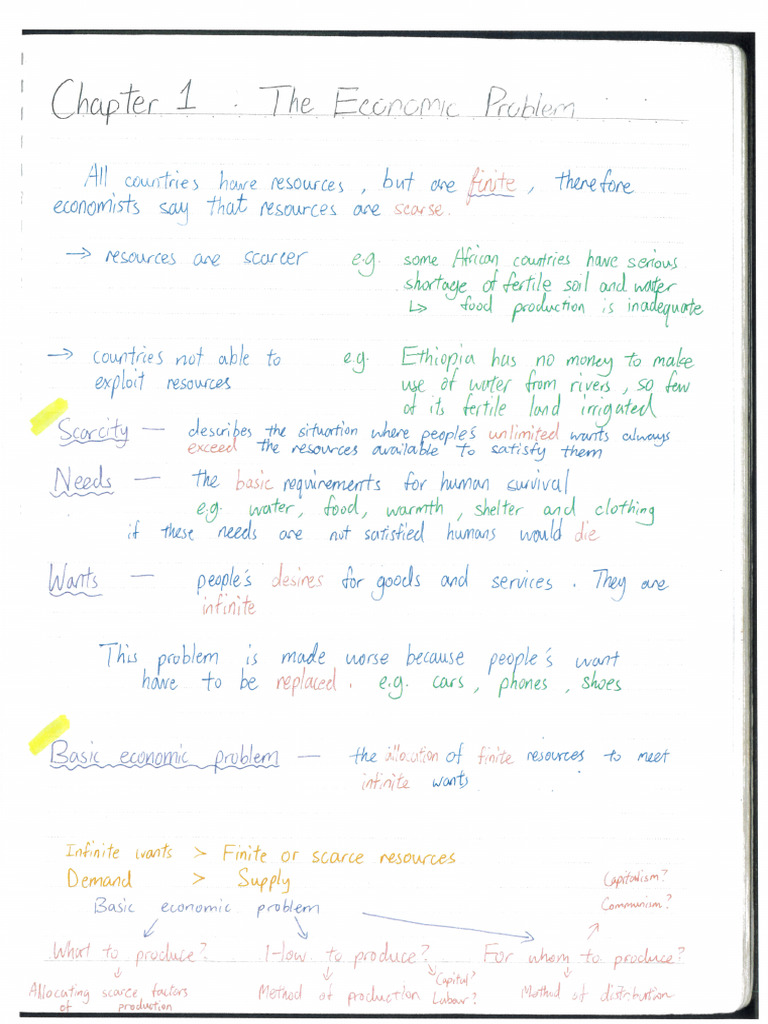 Chapter 1 : The Economic Problem
All countries have resources, but are finite, therefore
economists say that resources are scarse.
→ resources are scarcer e.g. some African countries have serious
shortage of fertile soil and water
↳ food production is inadequate
→ countries not able to e.g. Ethiopia has no money to make
exploit resources use of water from rivers, so few
of its fertile land irrigated
Scarcity — describes the situation where people's unlimited wants always
exceed the resources available to satisfy them
Needs — the basic requirements for human survival
e.g. water, food, warmth, shelter and clothing
if these needs are not satisfied humans would die
Wants — people's desires for goods and services. They are
infinite
This problem is made worse because people's want
have to be replaced. e.g. cars, phones, shoes
Basic economic problem — the allocation of finite resources to meet
infinite wants
Infinite wants > Finite or scarce resources
Demand > Supply
Capitalism?
Basic economic problem
Communism?
What to produce? How to produce? For whom to produce?
Allocating scarce factors
of production
Method of production
Capital?
Labour?
Method of distribution